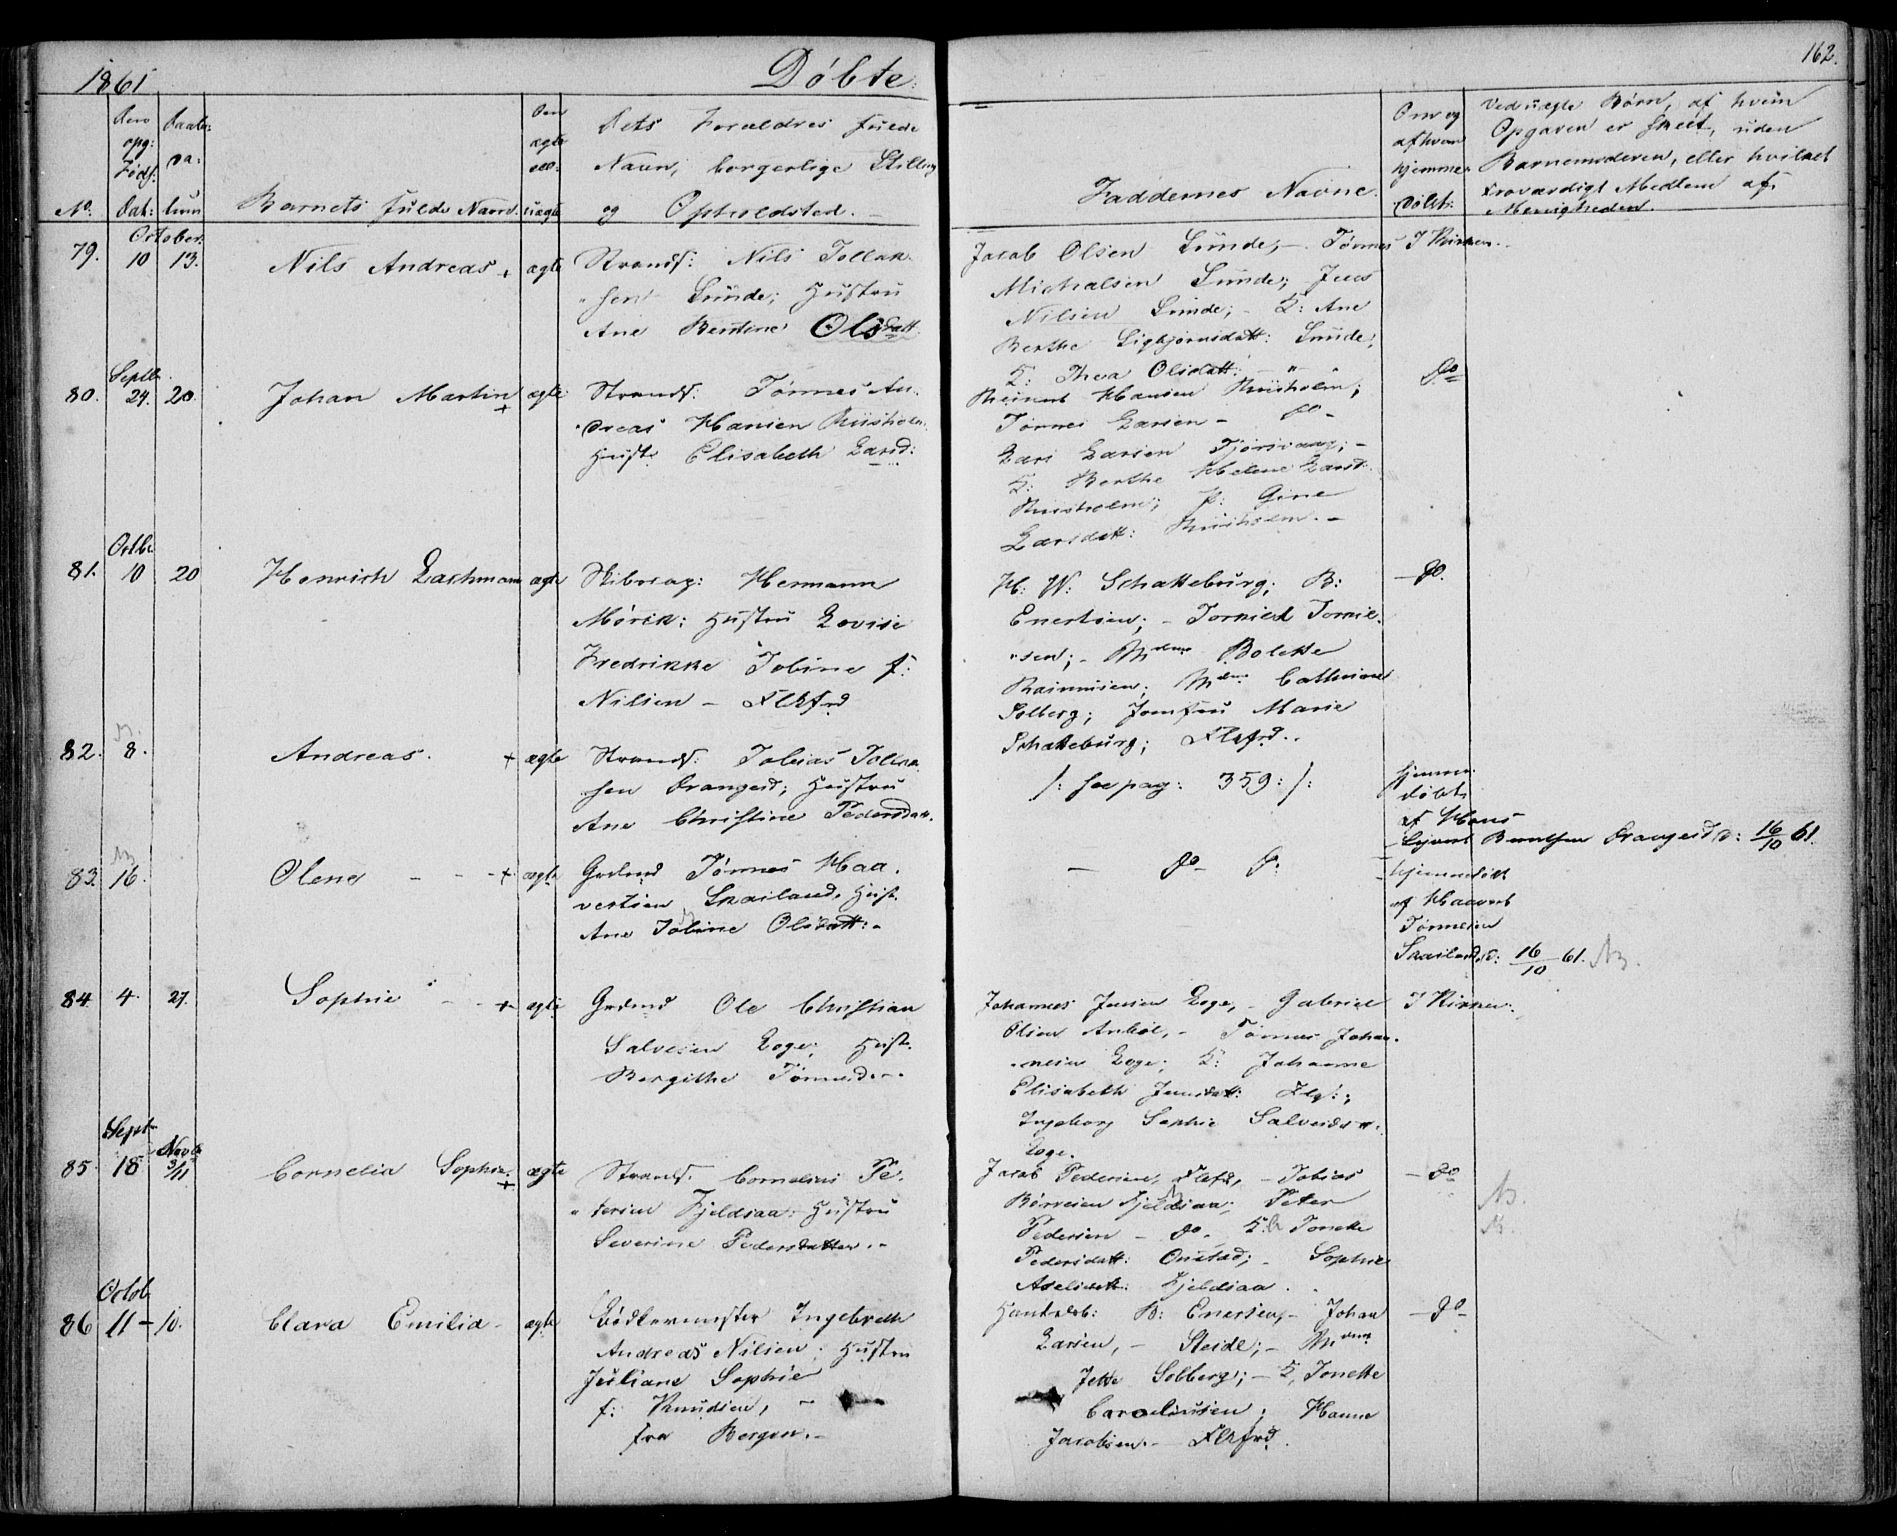 1861
Døbte.
162.
No.
Dens opg: Føds: Dat:
Daabs: Da: tum
Barnets fulde Navn.
Om ægte ell: uægte
Dets Forældres fulde
Navn, borgerlige Stilling
og Opholdsted.
Faddernes Navne.
Om og
af hvem
hjemme-
døbt.
Ved uægte Børn, af hvem
Opgaven er skeet, uden
Barnemoderen, eller hvilket
troværdigt Medlem af
Menigheden.
79. October. 10 13. Nils Andreas + ægte
Strands: Nils Tollak-
sen Sunde; Hustru
Ane Bertine Olsdatt.
Jacob Olsen Sunde, - Tønnes
Michalsen Sunde; Jens
Nilsen Sunde; - K: Ane
Berthe Sigbjørnsdatt: Sunde;
K: Thea Olsdatt: - " -
I Kirken.
80. Septb. 24. 20. Johan Martin + ægte
Strands: Tønnes An-
dreas Hansen Riisholm.
Hust: Elisabeth Larsd:
Reinert Hansen Riisholm;
Tønnes Larsen - do -
Lars Larsen Tjørsvaag; -
K: Berthe Helene Larsd.
Riisholm; P: Gine
Larsdatt: Riisholm. -
do
81. Octbr 10 20 Henrich Lachmann ægte
Skibscap: Hermann
Mørck: Hustru Lovise
Fredrikke Tobine f:
Nilsen - Flkfrd
H: W: Schatteburg; B:
Enertsen; - Torkild Torkil-
sen; - Mdme Bolette
Rasmusen; Mdme Cathrine
Solberg; Jomfru Marie
Schatteburg; Flkfrd..
- do.
82. 8. Andreas. + ægte
Strands: Tobias Tollak-
sen Drangeid; Hustru
Ane Christine Pedersdatt.
/: see pag: 359: /:
hjemme-
døbt
af Hans
Sejvert Berntsen Drangeid, d: 16/10 61.
83. 16. Olene - - - + ægte
Grdmd Tønnes Haa-
vertsen Skailand, Hust.
Ane Tobine Olsdatt: -
- do - do
- hjemmedøbt
af Haavert
Tønnesen
Skailand, d: 16/10 61. N3.
84. 4. 27. Sophie - - + ægte
Grdmd Ole Christian
Salvesen Loge; Hust.
Bergithe Tønnesd. -
Johannes Jensen Loge, - Gabriel
Olsen Aabøe, - Tønnes Johan-
nesen Loge; K: Johanne
Elisabeth Jensdatt: Flg: ;
Ingeborg Sophie Salvesdatt:
Loge.
I Kirken:
85. Sept. 18 Novbr 3/11 Cornelia Sophie. + ægte
Strands. Cornelius Pe-
dersen Fjeldsaa: Hustru
Severine Pedersdatter. -
Jacob Pedersen, Flkfd, - Tobias
Børresen Fjeldsaa; Peter
Pedersen - do - K: Tonette
Pedersdatt: Onstad; - Sophie
Axelsdatt: Fjeldsaa.
- do
86. Octob. 11 - 10. Clara Emilia - ægte
Bødkermester Ingebreth
Andreas Nilsen; Hustru
Juliane Sophie
f: Knudsen, -
fra Bergen. -
Handelsb: B: Enersen, - Johan
Larsen, - Steidl; - Mdme
Jette Solberg; - K, Tonette
Caroliusen; Hanne
Jacobsen. - Flkfrd.
- do -